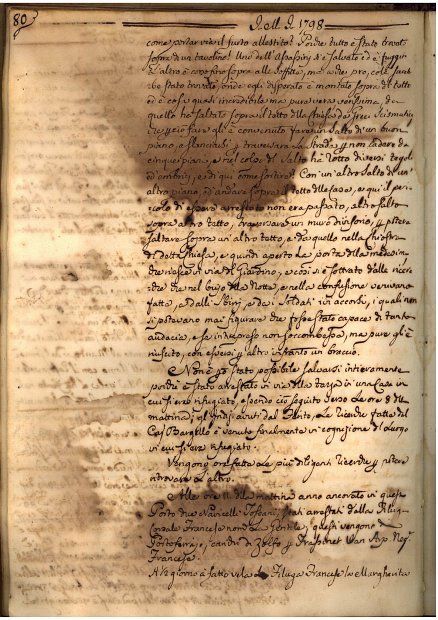 80
1798
come portar via il furto allestito! Poiche tutto è stato trovato
sopra di un tavolino! Uno dell'Assassini si è salvato ed è fuggito
L'altro è
be stato trovato, onde egli disperato è montato sopra di tetti
ed è cosa quasi incredibile ma pure vera verissima, da
quello ha saltato sopra il tetto della Chiesa de Greci Scismatici
che per fare gli è convenuto fare un salto di un buon
piano, e slanciarsi p traversare la Strada, p non cadere da
cinque piani, e nel colpo del Salto ha rotto diversi tegoli
ed embrici, e di qui come sortire? Con un altro Salto di un
altro piano, ed andare sopra il tetto della Casa, e qui il peri=
colo di essere arrestato non era passato, altro salto
sopra altro tetto, traversare un muro divisorio, p potere
saltare sopra un altro tetto, e da quello nella
di detta Chiesa, e quindi aperto la porta della medesima
che riesce in via del Giardino, e così si è sottrato dalle ricer=
che che nel bujo della Notte, e nella confusione venivano
fatte, e dalli Sbirri, e da i Soldati ivi accorsi, i quali non
si potevano mai figurare che fosse stato capace di tanta
audacia, e se intrapreso non soccombesse, ma pure gli è
riuscito, con essersi p altro infranto un braccio.
Non è p stato possibile salvarsi intieramente
poiche è stato arrestato in via della in una Casa in
cui si era rifugiato, essendo ciò seguito verso le ore 8 della
mattina; gl'Indizi avuti dal le ricerche fatte dal
Cap Bargello è venuto finalmente in cognizione del Luogo
in cui si era rifugiato.
Vengono ora fatte le più diligenti ricerche p potere
ritrovare l'altro.
Alle ore 11 della mattina anno ancorato in questo
Porto due Navicelli Toscani, stati arrestati dalla Filuga
Corsale Francese nominata Gentile, questi vengono da
Portoferrajo, carichi di Zolfo p
Francese.
A ½ giorno à fatto vela la Filuga Francese la Margherita